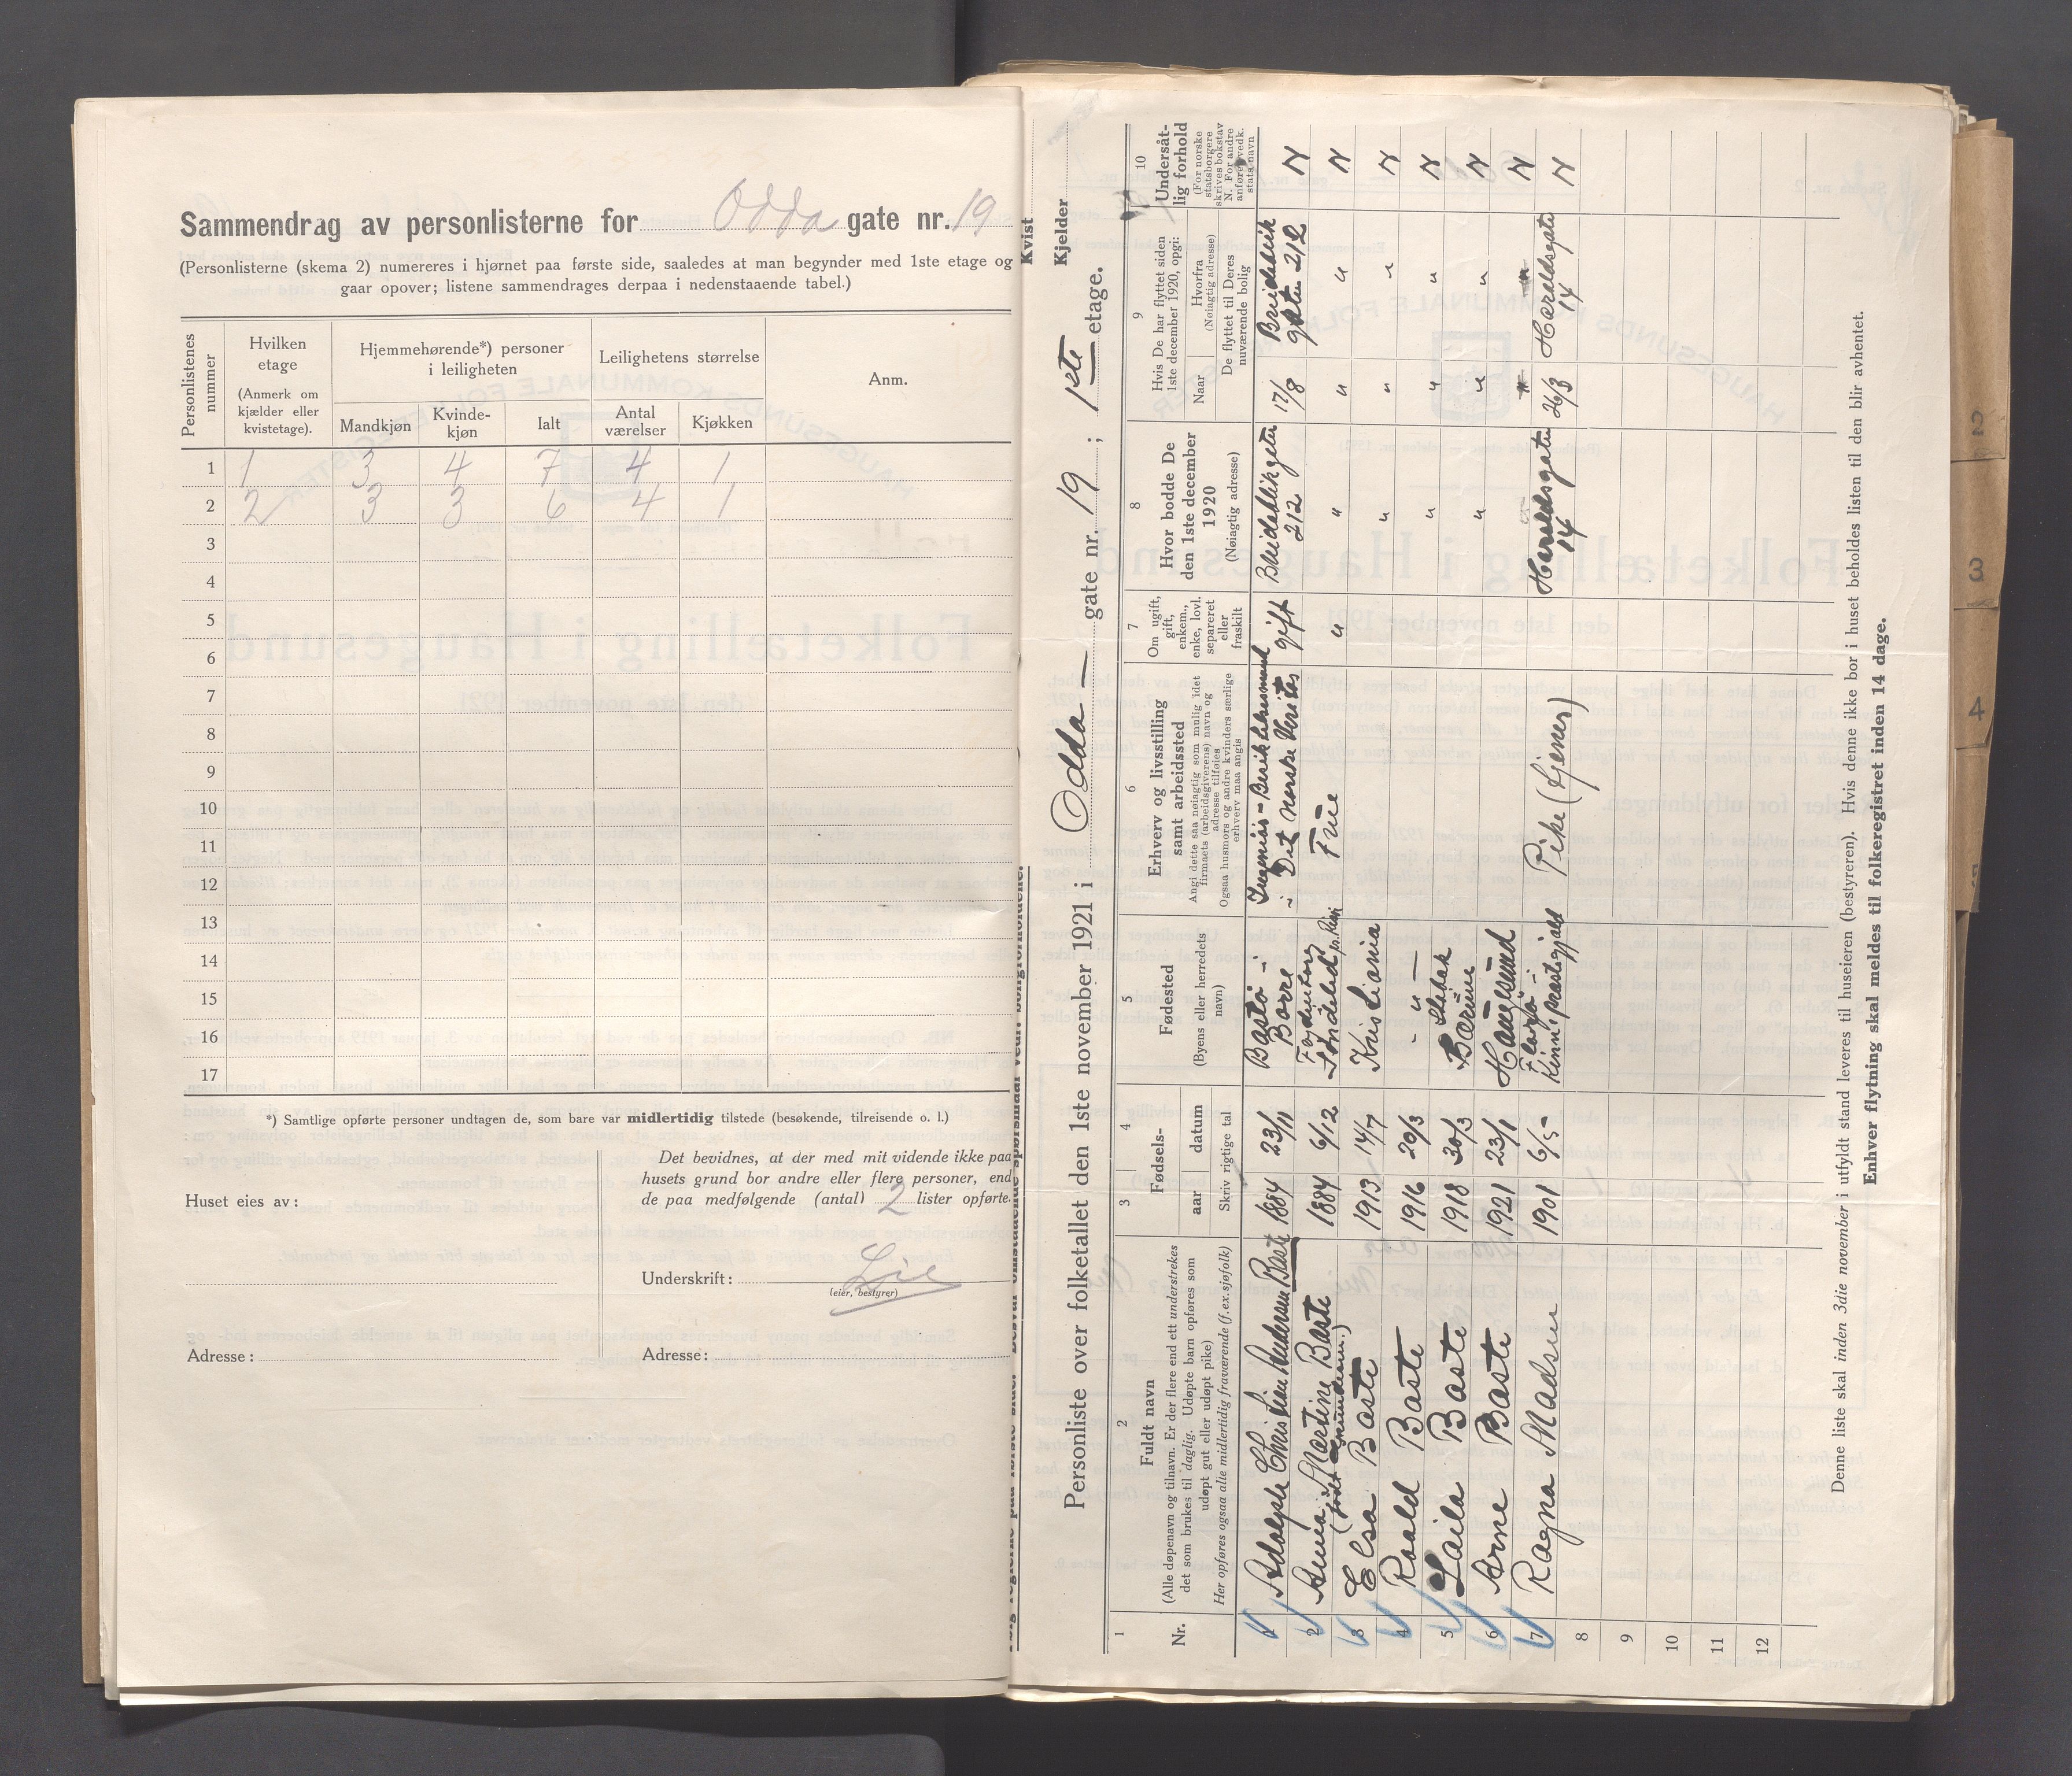 Sammendrag av personlisterne for Odda gate nr. 19
(Personlisterne (skema 2) numereres i hjørnet paa første side, saaledes at man begynder med 1ste etage og
gaar opover; listene sammendrages derpaa i nedenstaaende tabel.)
Personlistenes nummer
Hvilken etage
(Anmerk om kjælder eller kvistetage).
Hjemmehørende*) personer i leiligheten
Mandkjøn
Kvinde-kjøn
Ialt
Leilighetens størrelse
Antal værelser
Kjøkken
Anm.
1 1 3 4 7 4 1
2 2 3 3 6 4 1
3
4
5
6
7
8
9
10
11
12
13
14
15
16
17
*) Samtlige opførte personer undtagen de, som bare var midlertidig tilstede (besøkende, tilreisende o. l.)
Huset eies av:
Adresse:
Det bevidnes, at der med mit vidende ikke paa
husets grund bor andre eller flere personer, end
de paa medfølgende (antal) 2 lister opførte.
Underskrift: Lie
(eier, bestyrer)
Adresse:
Kvist
Kjelder
Personliste over folketallet den 1ste november 1921 i Odda gate nr. 19; 1ste etage.
1
Nr.
2
Fuldt navn
(Alle døpenavn og tilnavn. Er der flere end ett understrekes
det som brukes til daglig. Udøpte barn opføres som
udøpt gut eller udøpt pike)
Her opføres ogsaa alle midlertidig fraværende (f. ex. sjøfolk)
3 4
Fødsels-
aar datum
Skriv rigtige tal
5
Fødested
(Byens eller herredets navn)
6
Erhverv og livsstilling
samt arbeidssted
Angi dette saa nøiagtig som mulig idet
firmaets (arbeidsgiverens) navn og
adresse tilføies
Ogsaa husmors og andre kvinders særlige
erhverv maa angis
7
Om ugift,
gift,
enkem.,
enke, lovl.
separeret
eller
fraskilt
8
Hvor bodde De
den 1ste december
1920
(Nøiagtig adresse)
9
Hvis De har flyttet siden
1ste december 1920, opgi:
Naar
Hvorfra
(Nøiagtig adresse)
De flyttet til Deres
nuværende bolig
10
Undersåt-
lig forhold
(For norske
statsborgere
skrives bokstav
N. For andre
anføres vedk.
stats navn
1 Adolph Christian Andersen Baste 1884 23/11 Bastø i Borre Ingeniør - i Det Norske Veritas gift Breidablikgaten 212 17/8 Breidablik gaten 212 N
2 Anna Martine Baste 1884 6/12 Søndeled Frue " " " " N
3 Elsa Baste 1913 14/7 Kristiania " " " N
4 Roald Baste 1916 20/3 - " - " " " N
5 Laila Baste 1918 30/3 Bærum " " " N
6 Arne Baste 1921 23/1 Haugesund " " N
7 Ragna Madsen 1901 6/5 Florø i Kinn prestegjeld Pike (tjener) Haraldsgaten 14 26/3 Haraldsgaten 14 N
8
9
10
11
12
Denne liste skal inden 3die november i utfyldt stand leveres til huseieren (bestyreren). Hvis denne ikke bor i huset beholdes listen til den blir avhentet.
Enhver flytning skal meldes til folkeregistret inden 14 dage.
2
3
4